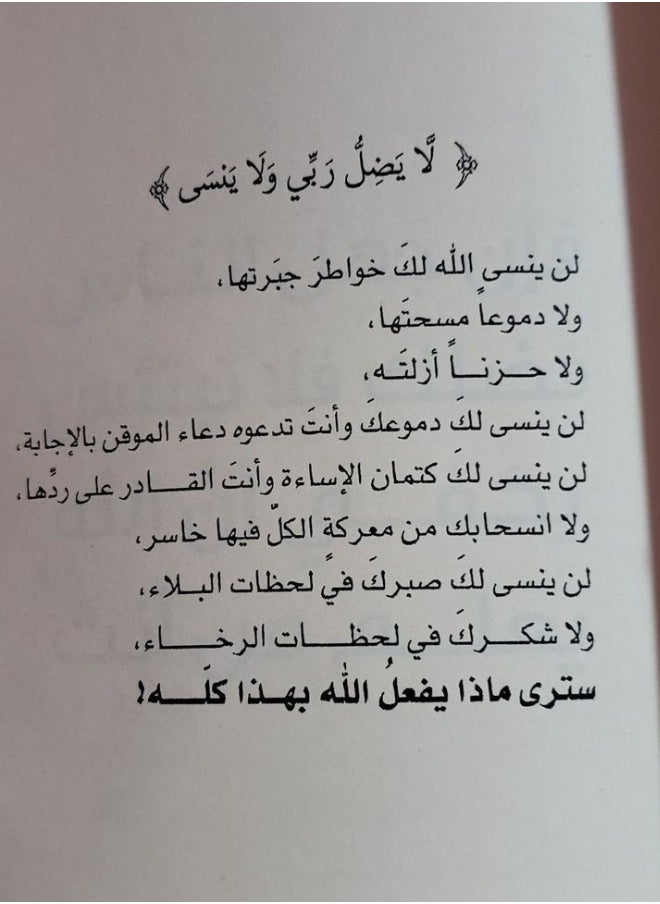 ﴿ لَّا يَضِلُّ رَبِّي وَلَا يَنسَى ﴾
لن ينسى الله لكَ خواطرَ جبَرتها،
ولا دموعاً مسحتَها،
ولا حـزنـاً أزلتَـه،
لن ينسى لكَ دموعكَ وأنتَ تدعوه دعاء الموقن بالإجابة،
لن ينسى لكَ كتمان الإساءة وأنتَ القـادر على ردِّها،
ولا انسحابك من معركة الكلّ فيها خاسر،
لن ينسى لكَ صبركَ في لحظات البـلاء،
ولا شكـركَ في لحظـات الرخـاء،
سترى ماذا يفعلُ الله بهـذا كلّـه!